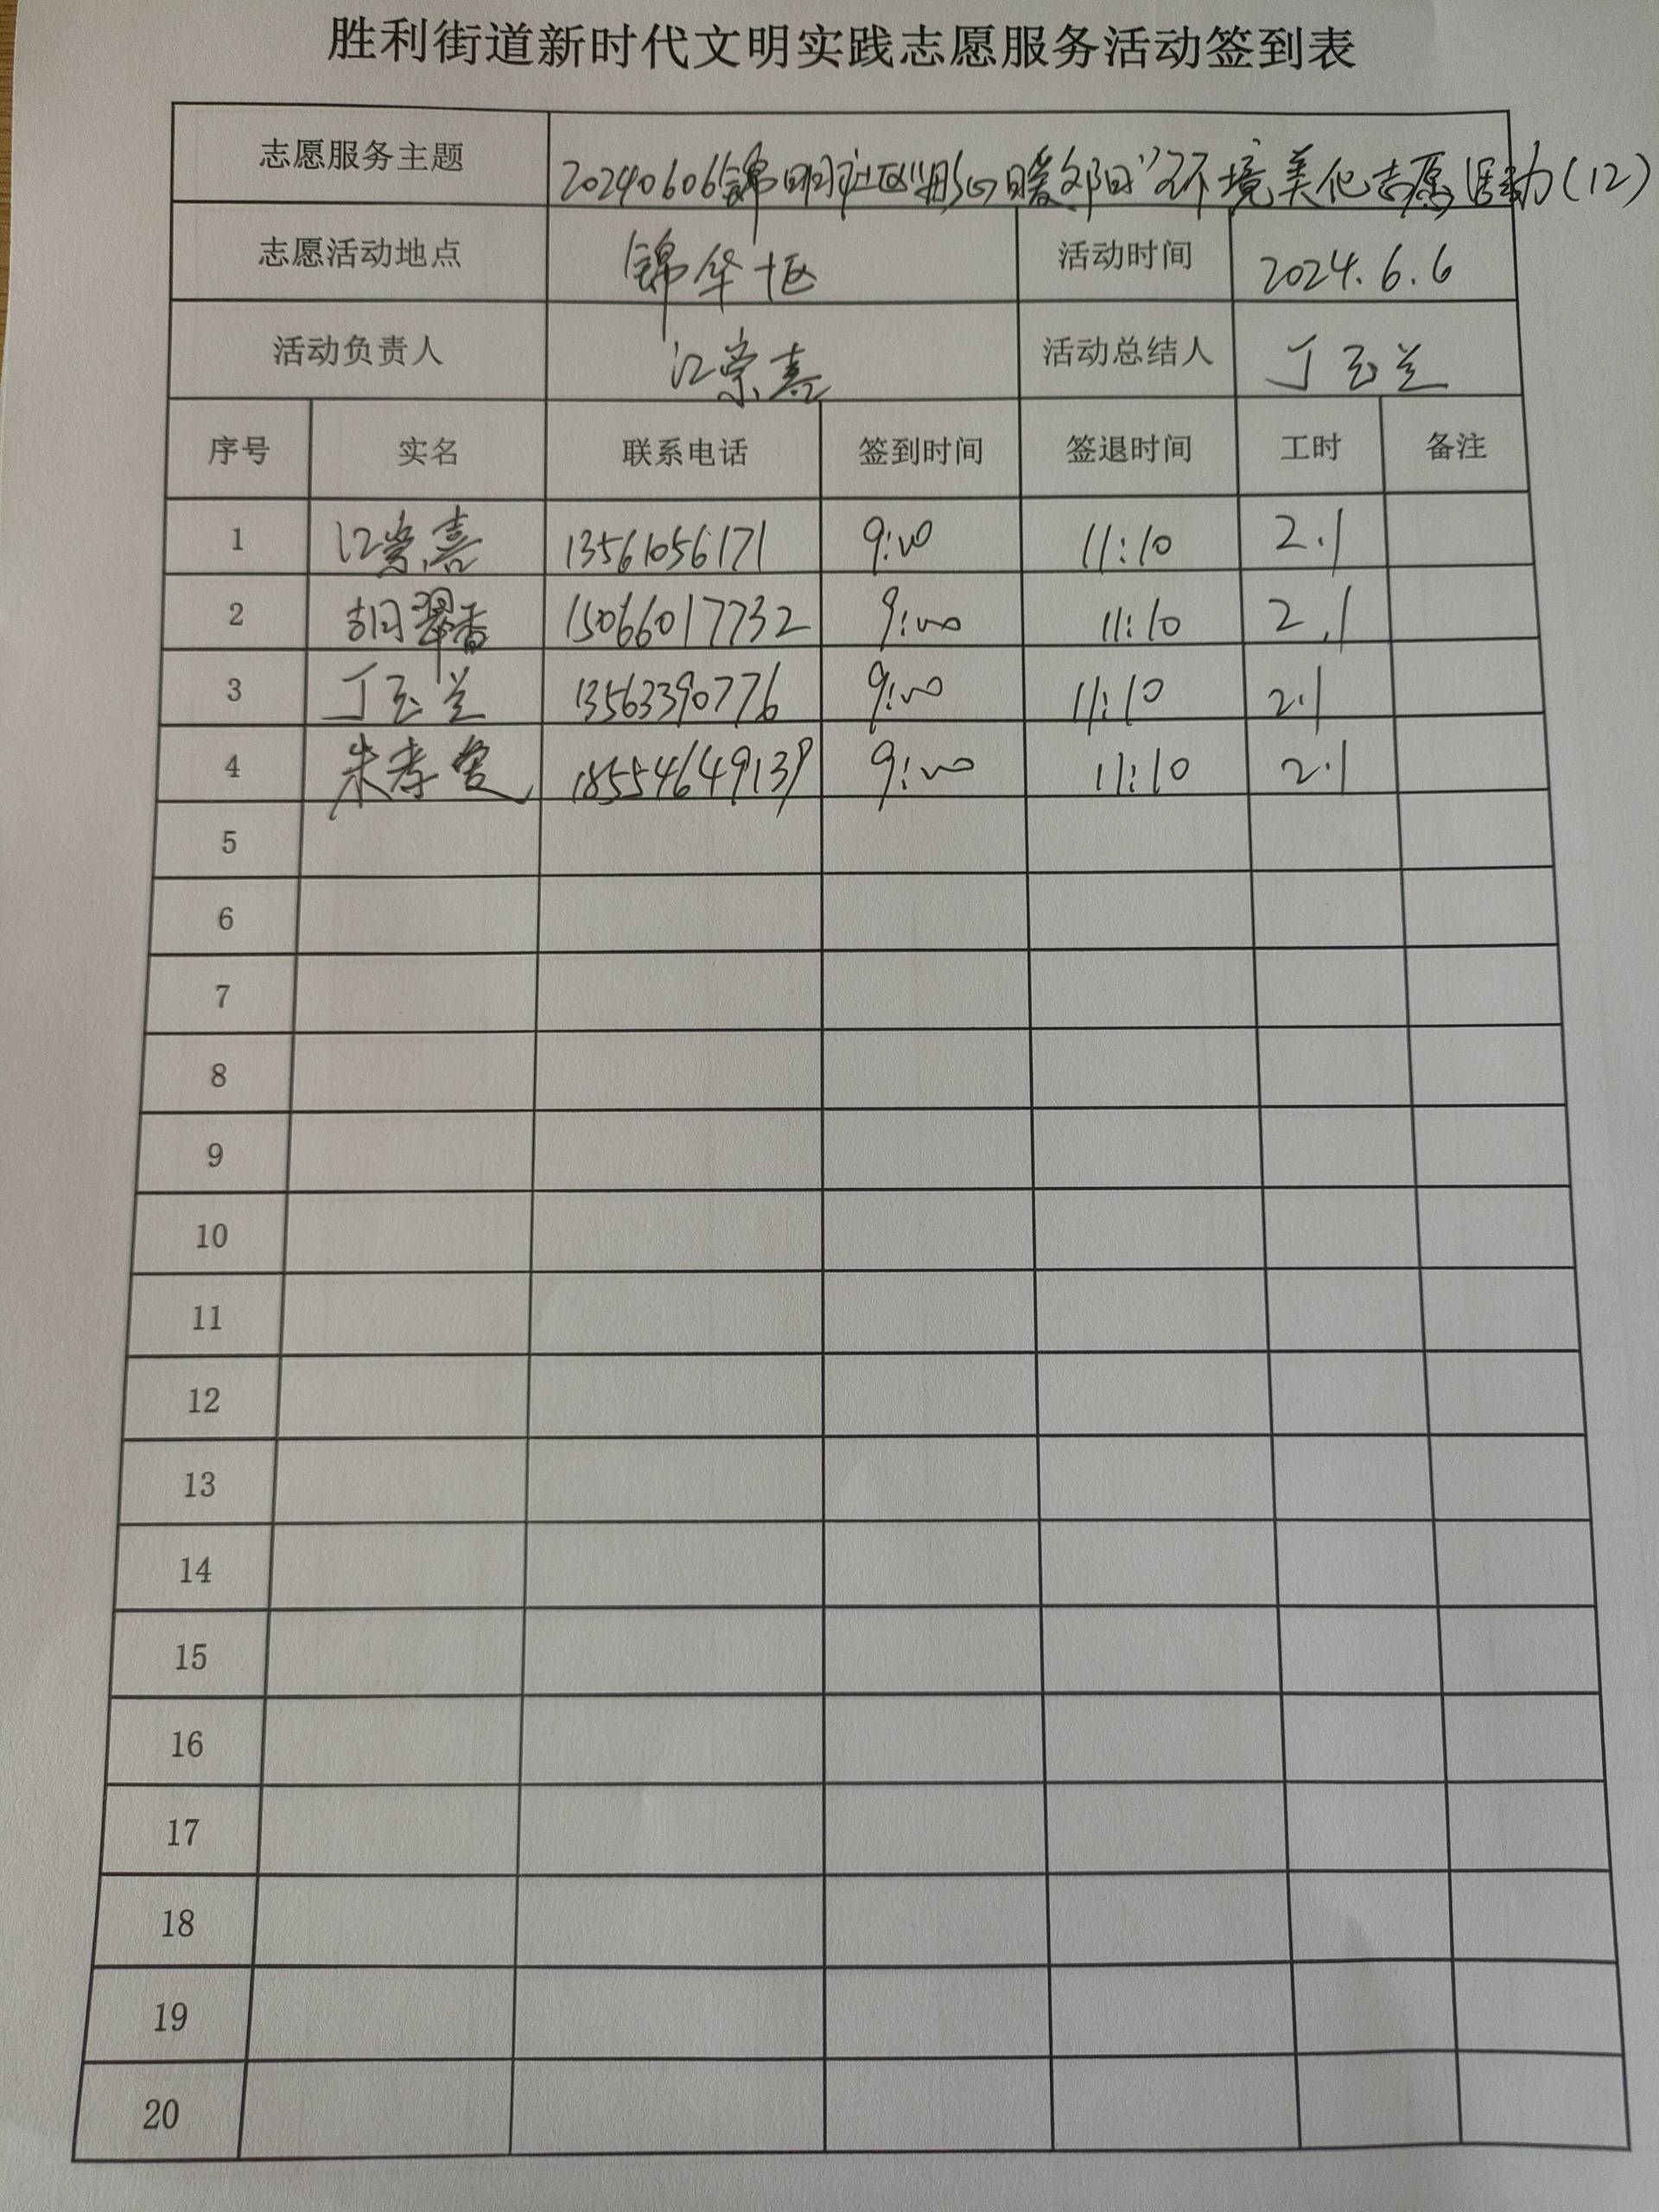 胜利街道新时代文明实践志愿服务活动签到表
志愿服务主题 20240606锦明社区"彤心暖夕阳"环境美化志愿活动(12)
志愿活动地点 锦华十区 活动时间 2024.6.6
活动负责人 江荣喜 活动总结人 丁玉兰
序号 实名 联系电话 签到时间 签退时间 工时 备注
1 江荣喜 13561056171 9:00 11:10 2.1
2 胡翠香 15066017732 9:00 11:10 2.1
3 丁玉兰 13563390776 9:00 11:10 2.1
4 朱孝 18554649139 9:00 11:10 2.1
5
6
7
8
9
10
11
12
13
14
15
16
17
18
19
20